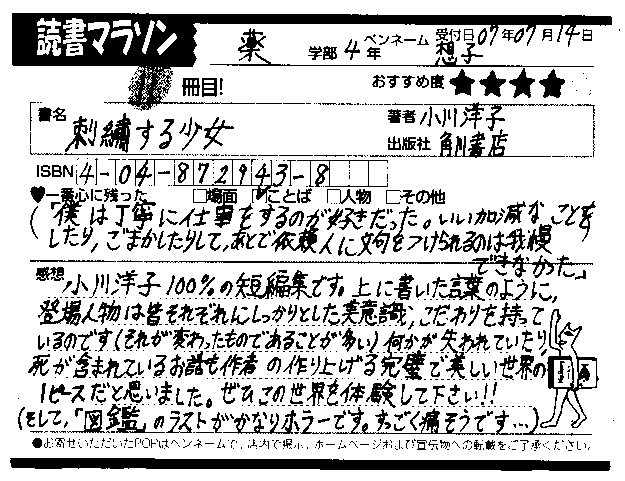 読書マラソン
薬 学部 4 年 ペンネーム 想子 受付日 07年07月14日
11 冊目!
おすすめ度 ★★★★☆
書名 刺繍する少女
著者 小川洋子
出版社 角川書店
ISBN 4-04-872943-8
♥一番心に残った □場面 ☑ことば □人物 □その他
(「僕は丁寧に仕事をするのが好きだった。いい加減なことを
したり,ごまかしたりして,あとで依頼人に文句をつけられるのは我慢
できなかった」
感想 小川洋子100%の短編集です。上に書いた言葉のように,
登場人物は皆それぞれにしっかりとした美意識,こだわりを持って
いるのです(それが変わったものであることが多い)何かが失われていたり,
死が含まれているお話も作者の作り上げる完璧で美しい世界の
1ピースだと思いました。ぜひこの世界を体験して下さい!!
(そして,「図鑑」のラストがかなりホラーです。すっごく痛そうです…)
●お寄せいただいたPOPはペンネームで、店内で掲示、ホームページおよび宣伝物への転載をご了承ください。